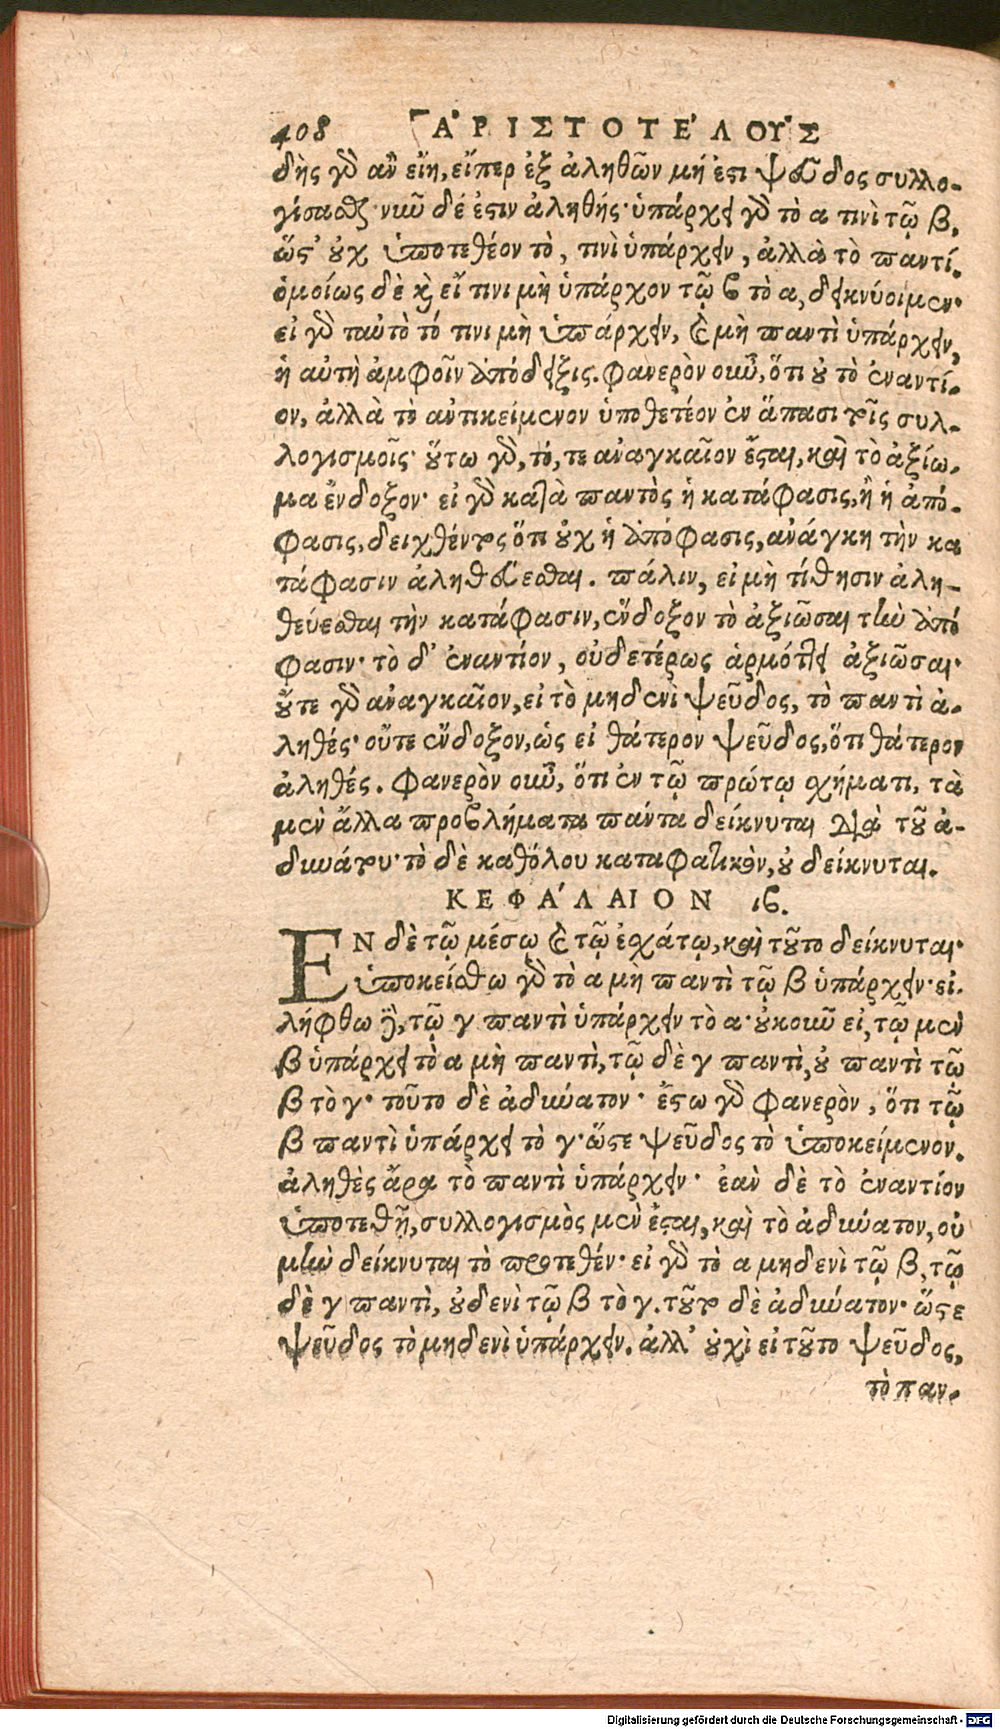 408 ἈΡΙΣΤΟΤΕ'ΛΟΥΣ
δὴς γὸ ἂν εἴη, εἴπερ ἐξ ἀληθῶν μή ἐστι ψεῦδος συλλο-
γίσασθαι· νῦν δέ ἐστιν ἀληθής· ὑπάρχει γὸ τὸ α τινὶ τῷ β,
ὥστ' οὐχ ὑποτεθέον τὸ, τινὶ ὑπάρχειν, ἀλλὰ τὸ παντί.
ὁμοίως δὲ καὶ εἴ τινι μὴ ὑπάρχον τῷ β τὸ α, δεικνύοιμεν·
εἰ γὸ ταὐτὸ τό τινι μὴ ὑπάρχειν, καὶ μὴ παντὶ ὑπάρχειν,
ἡ αὐτὴ ἀμφοῖν ἀπόδειξις. φανερὸν οὖν, ὅτι οὐ τὸ ἐναντί-
ον, ἀλλὰ τὸ ἀντικείμενον ὑποθετέον ἐν ἅπασι τοῖς συλ-
λογισμοῖς· οὕτω γὸ, τό, τε ἀναγκαῖον ἔσται, καὶ τὸ ἀξίω-
μα ἔνδοξον· εἰ γὸ κατὰ παντὸς ἡ κατάφασις, ἢ ἡ ἀπό-
φασις, δειχθέντος ὅτι οὐχ ἡ ἀπόφασις, ἀνάγκη τὴν κα
τάφασιν ἀληθεύεσθαι. πάλιν, εἰ μὴ τίθησιν ἀλη-
θεύεσθαι τὴν κατάφασιν, ἔνδοξον τὸ ἀξιῶσαι τὴν ἀπό
φασιν· τὸ δ' ἐναντίον, οὐδετέρως ἁρμόττει ἀξιῶσαι·
οὔτε γὸ ἀναγκαῖον, εἰ τὸ μηδενὶ ψεῦδος, τὸ παντὶ ἀ-
ληθές· οὔτε ἔνδοξον, ὡς εἰ θάτερον ψεῦδος, ὅτι θάτερον
ἀληθές. φανερὸν οὖν, ὅτι ἐν τῷ πρώτῳ σχήματι, τὰ
μὲν ἄλλα προβλήματα πάντα δείκνυται διὰ τοῦ ἀ-
δυνάτου· τὸ δὲ καθόλου καταφατικὸν, οὐ δείκνυται.
ΚΕΦΑ'ΛΑΙΟΝ ιϛ.
ΕΝ δὲ τῷ μέσῳ καὶ τῷ ἐσχάτῳ, καὶ τοῦτο δείκνυται·
ὑποκείσθω γὸ τὸ α μὴ παντὶ τῷ β ὑπάρχειν· εἰ-
λήφθω δὲ, τῷ γ παντὶ ὑπάρχειν τὸ α· οὐκοῦν εἰ, τῷ μὲν
β ὑπάρχει τὸ α μὴ παντὶ, τῷ δὲ γ παντὶ, οὐ παντὶ τῷ
β τὸ γ· τοῦτο δὲ ἀδύνατον· ἔστω γὸ φανερὸν, ὅτι τῷ
β παντὶ ὑπάρχει τὸ γ· ὥστε ψεῦδος τὸ ὑποκείμενον.
ἀληθὲς ἄρα τὸ παντὶ ὑπάρχειν· ἐὰν δὲ τὸ ἐναντίον
ὑποτεθῇ, συλλογισμὸς μὲν ἔσται, καὶ τὸ ἀδύνατον, οὐ
μὴν δείκνυται τὸ προτεθέν· εἰ γὸ τὸ α μηδενὶ τῷ β, τῷ
δὲ γ παντὶ, οὐδενὶ τῷ β τὸ γ. τοῦτο δὲ ἀδύνατον· ὥστε
ψεῦδος τὸ μηδενὶ ὑπάρχειν. ἀλλ' οὐχὶ εἰ τοῦτο ψεῦδος,
τὸ παν-
Digitalisierung gefördert durch die Deutsche Forschungsgemeinschaft - DFG